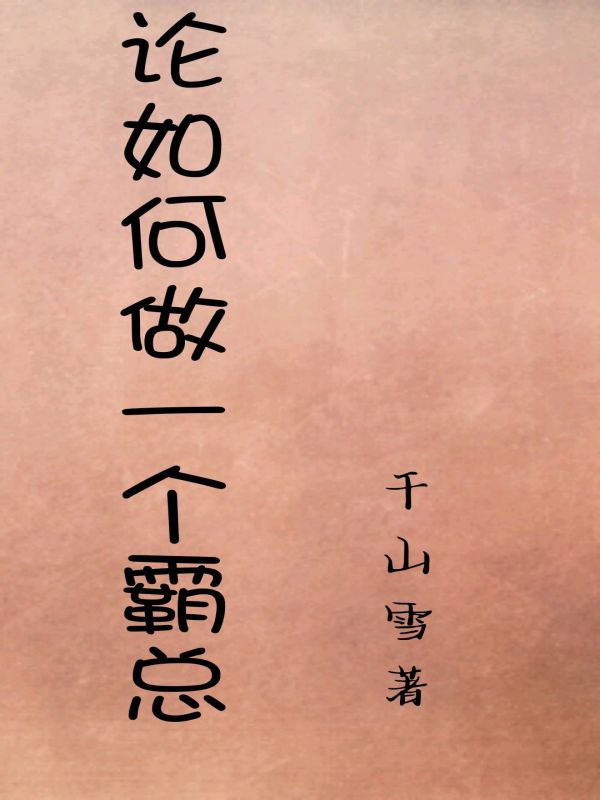 论如何做一个霸总
千山雪著